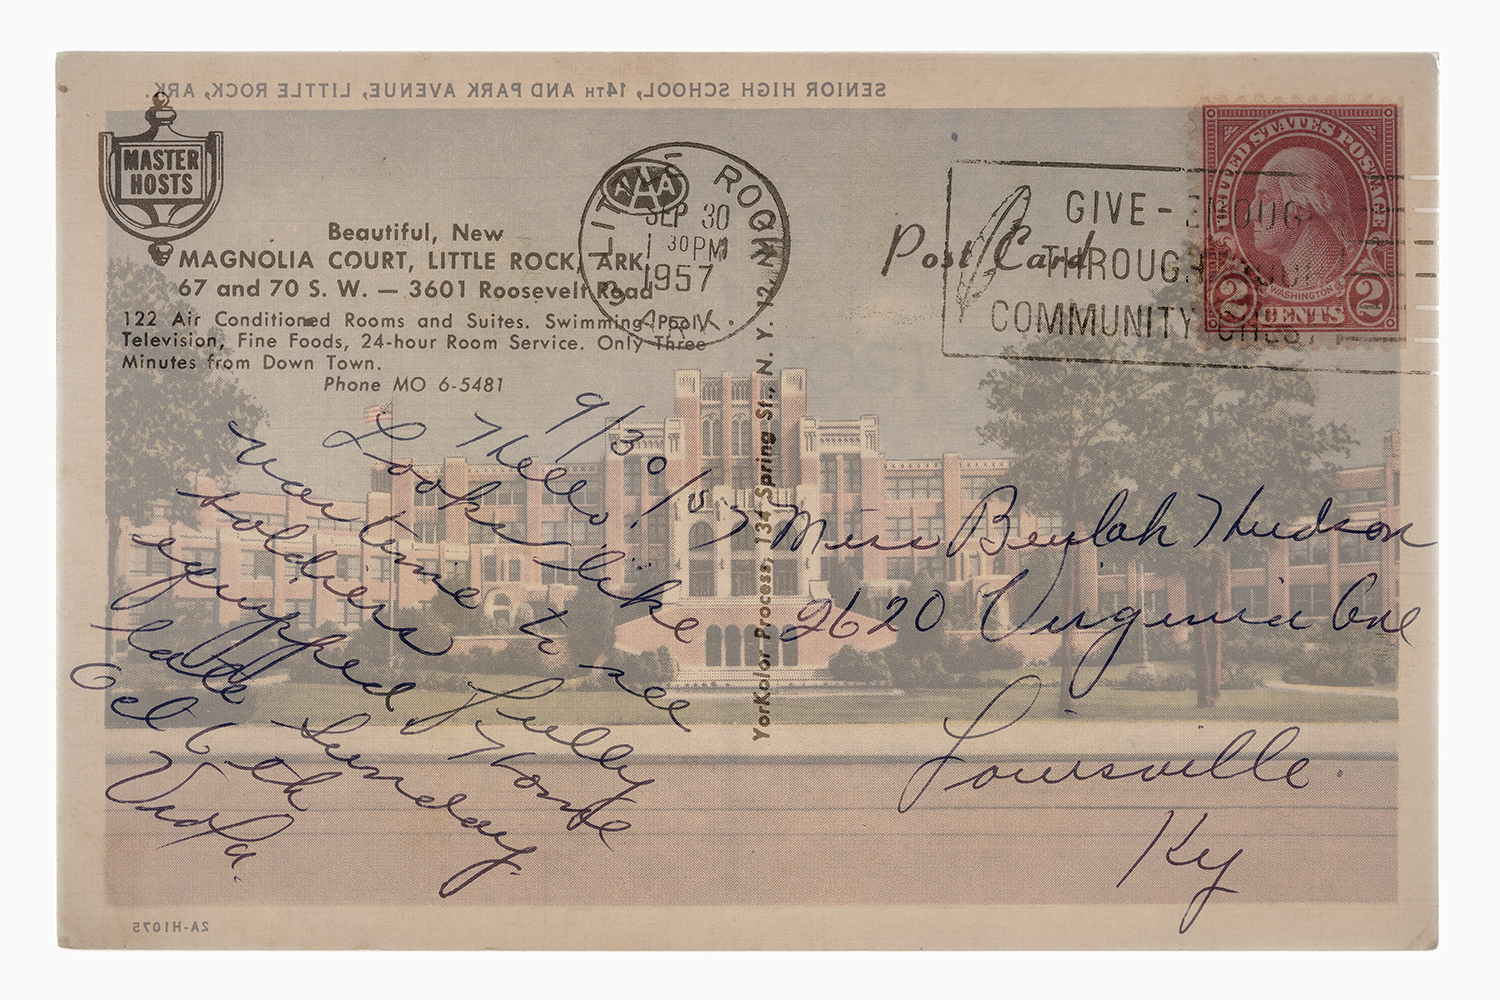 SENIOR HIGH SCHOOL, 14TH AND PARK AVENUE, LITTLE ROCK, ARK.
MASTER
HOSTS
Beautiful, New
MAGNOLIA COURT, LITTLE ROCK, ARK.
67 and 70 S. W. — 3601 Roosevelt Road
122 Air Conditioned Rooms and Suites. Swimming Pool.
Television, Fine Foods, 24-hour Room Service. Only Three
Minutes from Down Town.
Phone MO 6-5481
AAA
LITTLE ROCK
SEP 30
1 30 PM
1957
ARK.
Post Card
GIVE-ENOUGH
THROUGH YOUR
COMMUNITY CHEST
UNITED STATES POSTAGE
WASHINGTON
2 CENTS 2
YorKolor Process, 134 Spring St., N. Y. 12, N. Y.
9/30/57
Hello!
Looks like
war time to see
soldiers fully
equipped Home
late Sunday.
Oct 6th
Viola.
Miss Beulah Hudson
2620 Virginia Ave
Louisville.
Ky
2A-H1075